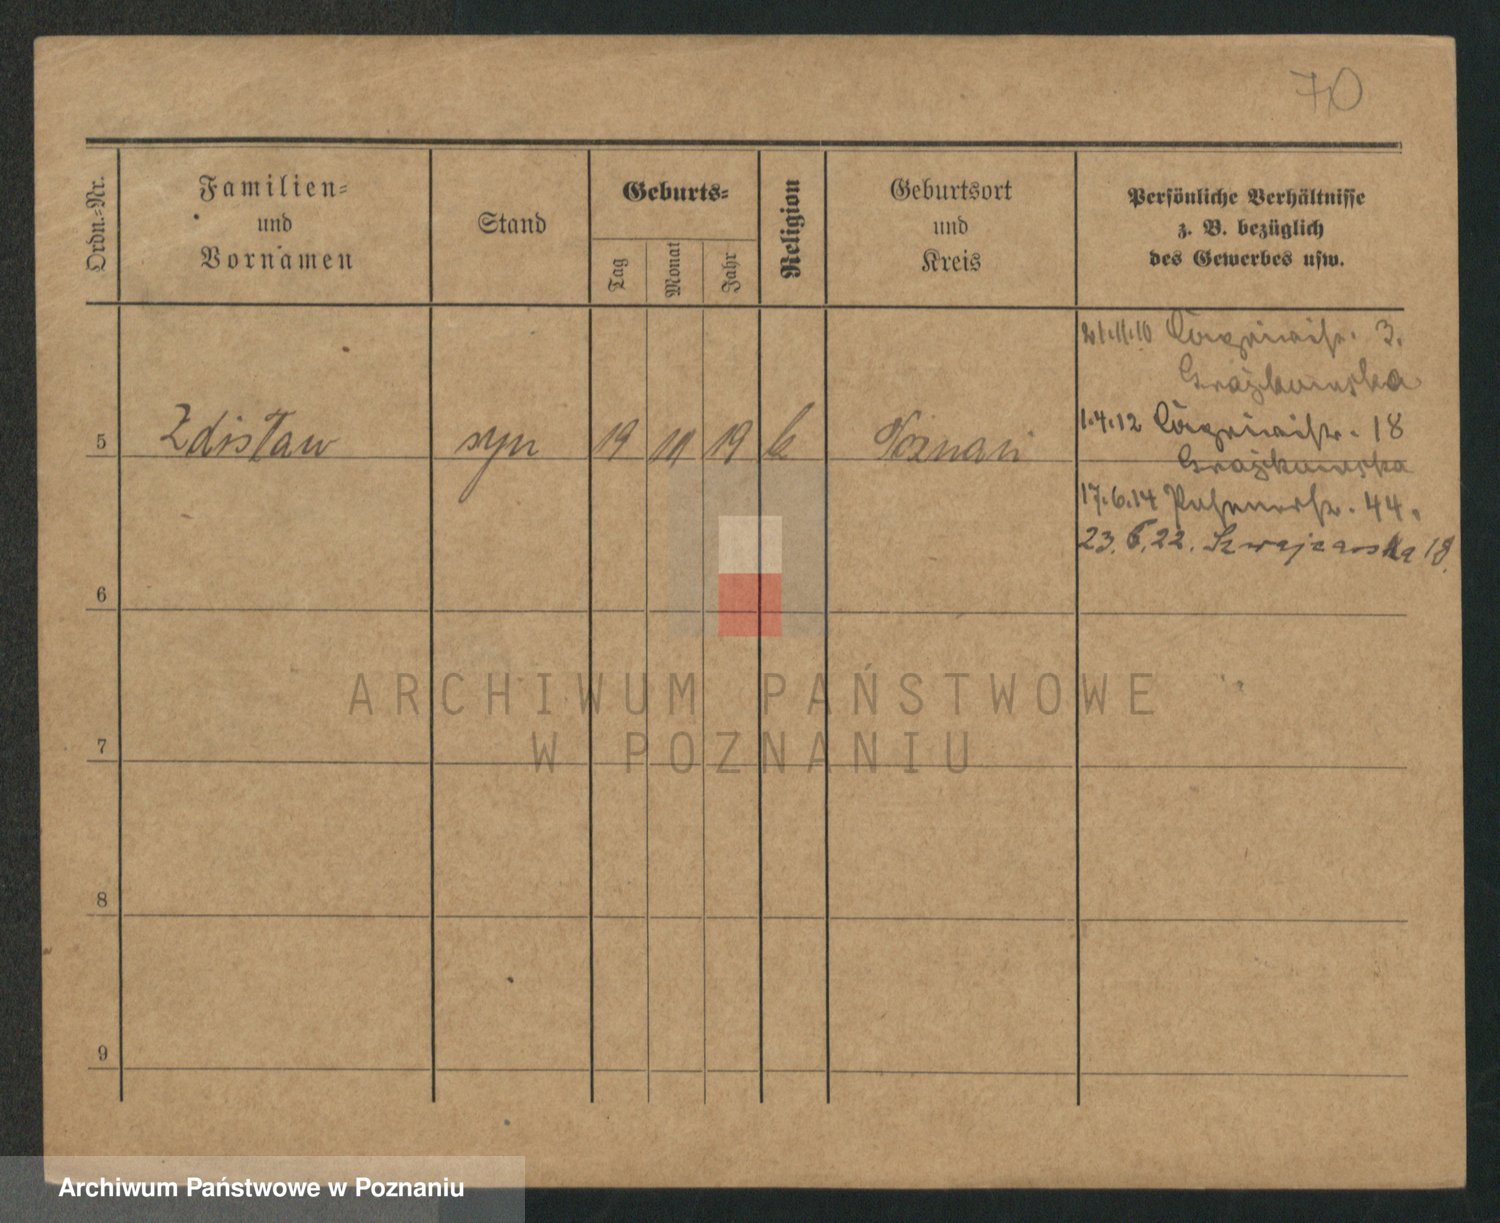 70
Ordn.-Nr.
Familien-
und
Vornamen
Stand
Geburts-
Tag
Monat
Jahr
Religion
Geburtsort
und
Kreis
Persönliche Verhältnisse
z. B. bezüglich
des Gewerbes usw.
21.11.10 3.
1.4.12 18
5 Zdisław syn 19 19 k Poznań
17.6.14 44.
23.6.22. Szwajcarska 18.
6
7
8
9
ARCHIWUM PAŃSTWOWE
W POZNANIU
Archiwum Państwowe w Poznaniu